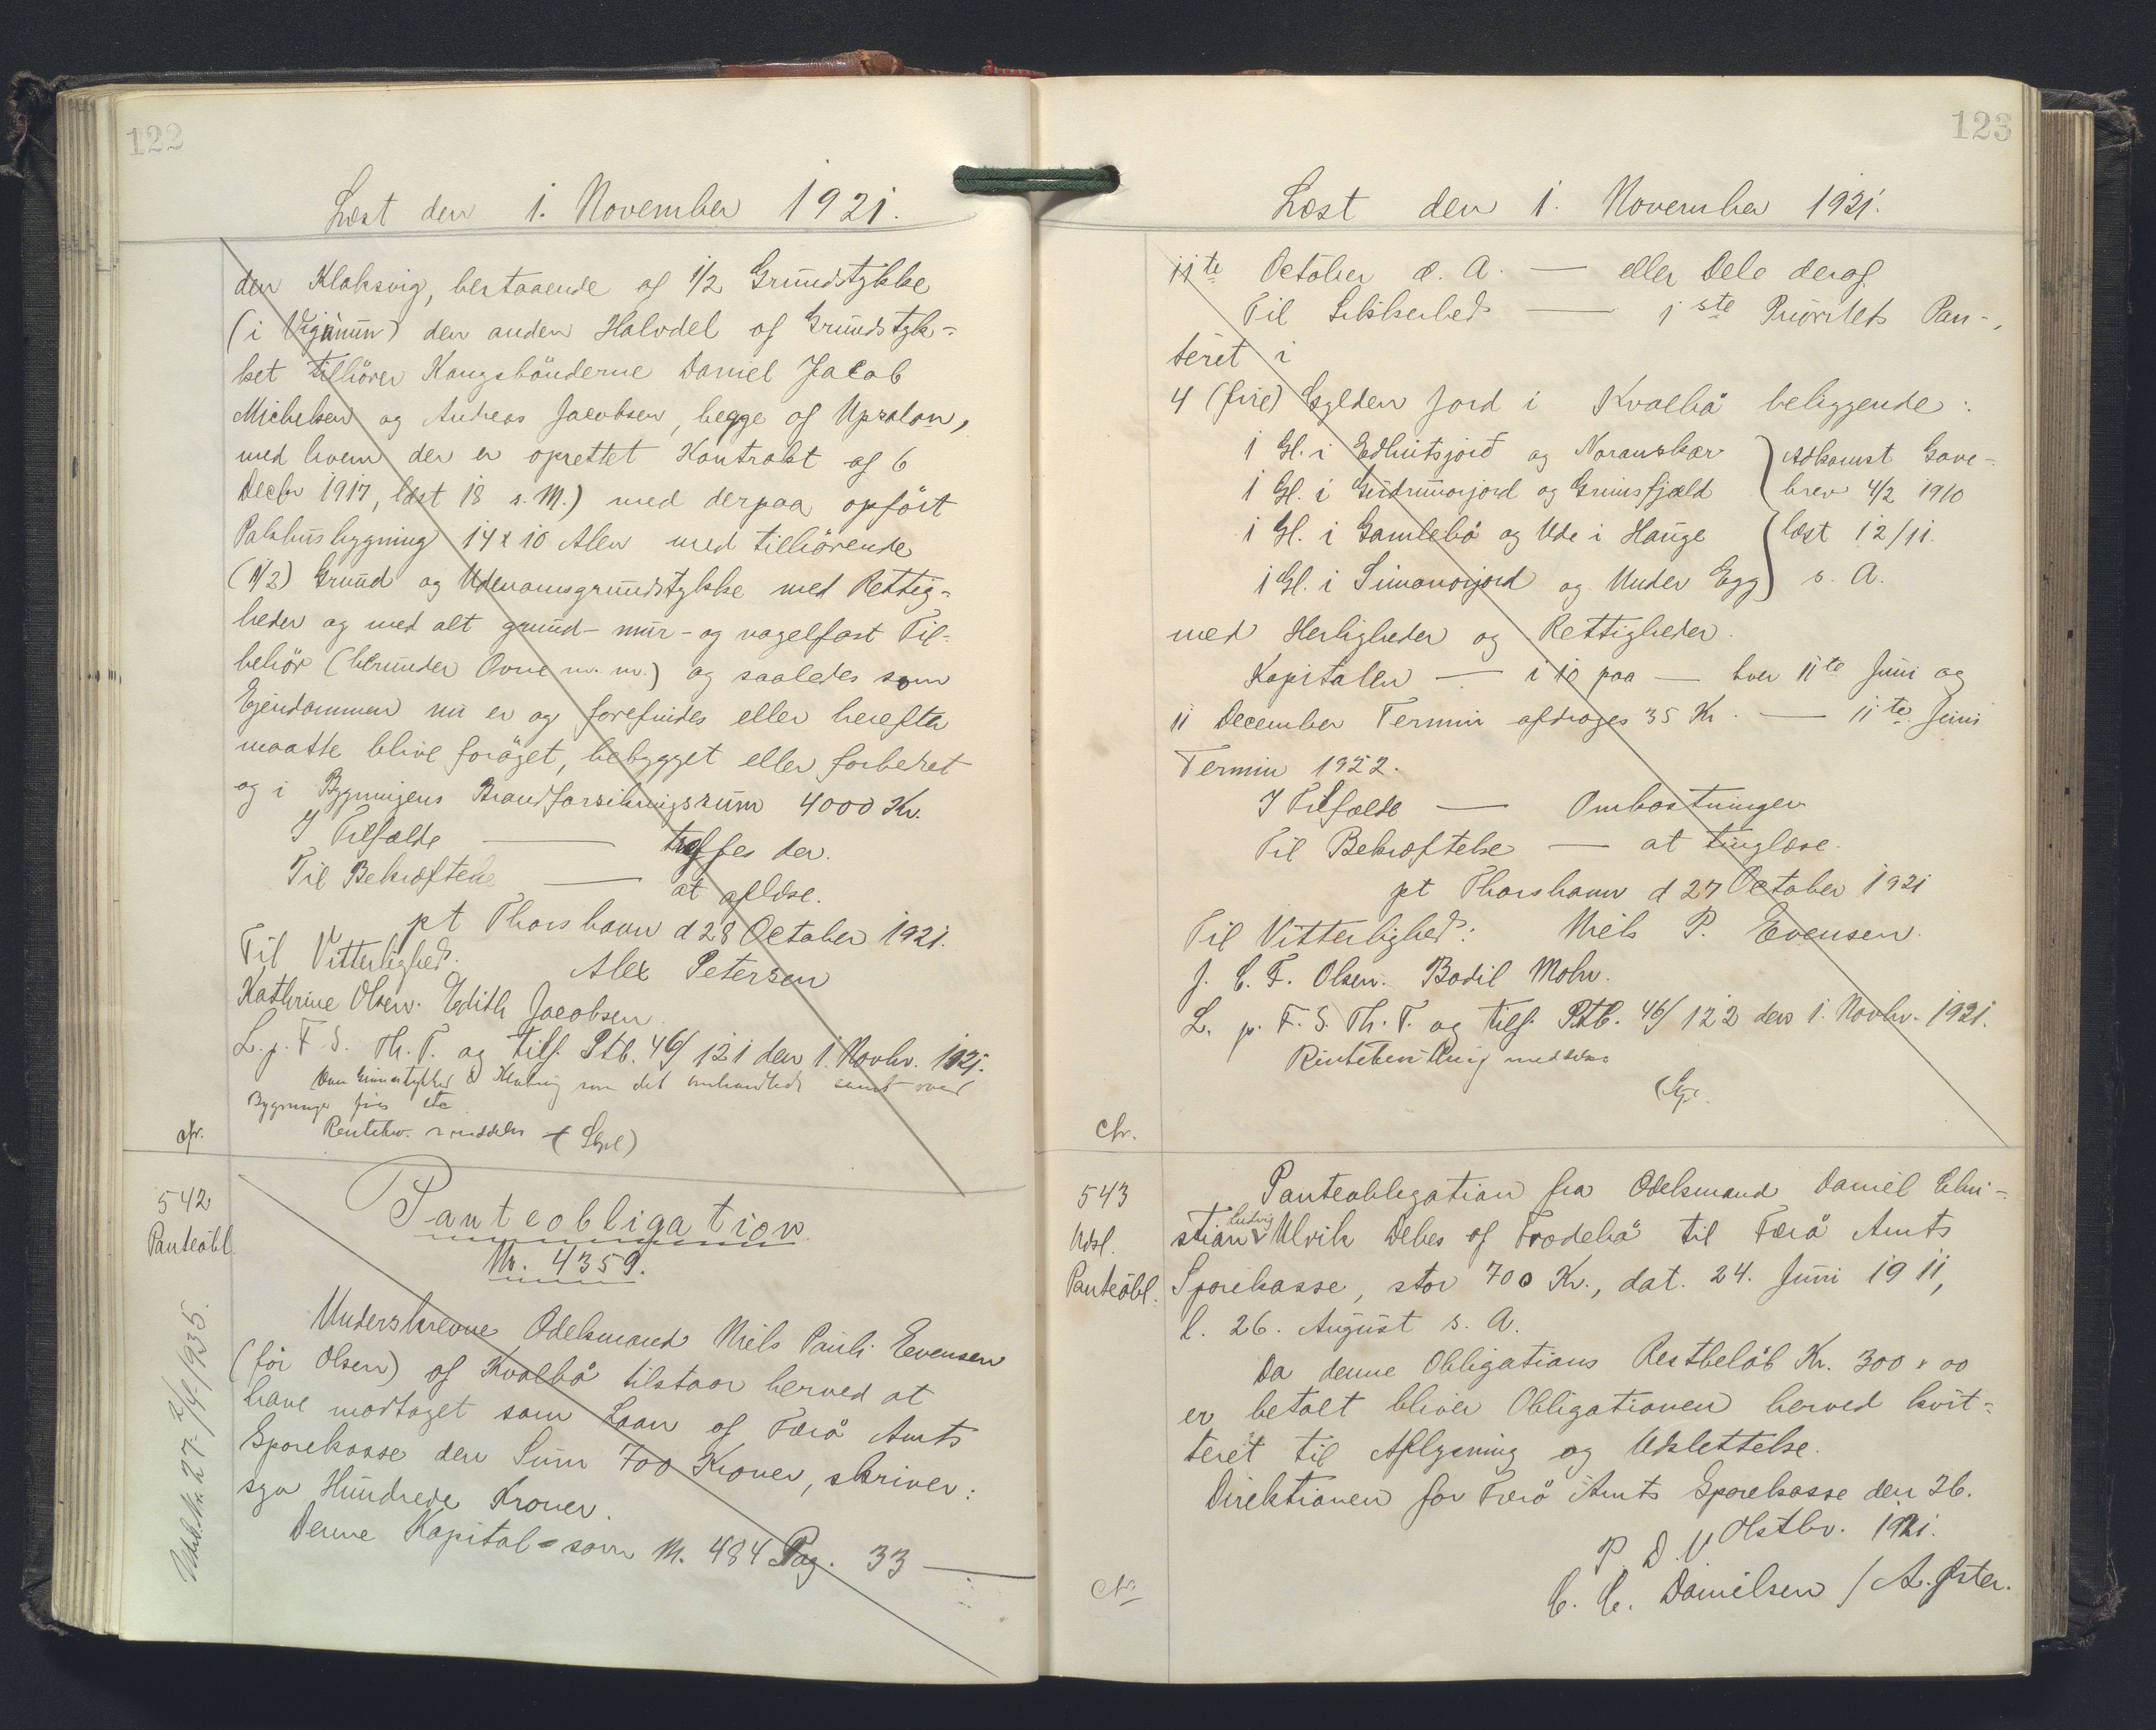 122
Læst den 1. November 1921.
den Klaksvig, bestaaende af 1/2 Grundstykke
(i Vigánun) den anden Halvdel af Grundstyk-
ket tilhører Kongsbönderne Daniel Jacob
Michelsen og Andreas Jacobsen, begge af Upsalon,
med hvem der er oprettet Kontrakt af 6
Decbr 1917, læst 18 s. M.) med derpaa opført
Pakhusbygning 14 x 10 Alen med tilhörende
(1/2) Grund og Udenomsgrundstykke med Rettig-
heder og med alt grund- mur- og nagelfast Til-
behör (herunder Ovne m. m.) og saaledes som
Ejendommen nu er og forefindes eller herefter
maatte blive forøget, bebygget eller forbedret
og i Bygningens Brandforsikringssum 4000 Kr.
I Tilfælde — træffes der.
Til Bekræftelse — at aflæse.
pt Thorshavn d 28 October 1921.
Til Vitterlighed. Alex Petersen
Kathrine Olsen. Edith Jacobsen
L. p. F. S. Th. T. og tilf. Ptb. 46/121 den 1. Novbr. 1921.
Bygninger
Rentebev. meddeles
cfr.
542
Panteobl.
Panteobligation
Nr. 4359.
Underskrevne Odelsmand Niels Pauli Evensen
(för Olsen) af Kvalbø tilstaar herved at
have modtaget som Laan af Færø Amts
Sparekasse den Sum 700 Kroner, skriver:
syv Hundrede Kroner.
Denne Kapital som N. 484 Pag. 33 —
Udsl. 27/4-1935.
123
Læst den 1. November 1921.
11te October d. A. — eller Dele deraf
Til Sikkerhed — 1ste Prioritets Pan-
teret i
4 (fire) Gylden Jord i Kvalbø beliggende:
1 Gl. i Edhiitsjord og Noranskar Adkomst Gave-
1 Gl. i Gudrunarjord og Grimsfjæld brev 4/2 1910
1 Gl. i Gamlebø og Ude i Hauge læst 12/11.
1 Gl. i Simonarjord og Under Egg s. A.
med Herligheder og Rettigheder.
Kapitalen — i 10 paa — hver 11te Juni og
11 December Termin afdrages 35 Kr. — 11te Juni
Termin 1922.
I Tilfælde — Omkostninger
Til Bekræftelse — at tinglæse.
pt Thorshavn d 27 October 1921
Til Vitterlighed: Niels P. Evensen.
J. C. F. Olsen. Bodil Mohr.
L. p. F. S. Th. T. og tilf. Ptb. 46/122 den 1. Novbr. 1921.
meddeles
cfr.
543
Udsl.
Panteobl.
Panteobligation fra Odelsmand Daniel Chri-
ludvig
stian Ulrik Debes af Frodebø til Færø Amts
Sparekasse, stor 700 Kr., dat. 24. Juni 1911,
l. 26. August s. A.
Da denne Obligations Restbeløb Kr. 300 " 00
er betalt bliver Obligationen herved kvit-
teret til Aflysning og Udslettelse.
Direktionen for Færø Amts Sparekasse den 26.
P. D. V. Oktbr. 1921.
C. C. Danielsen / A. Øster.
cfr